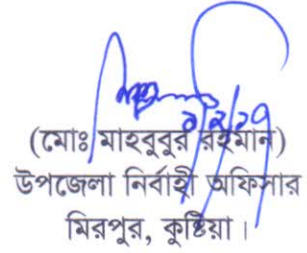 (মোঃ মাহবুবুর রহমান)
উপজেলা নির্বাহী অফিসার
মিরপুর, কুষ্টিয়া।